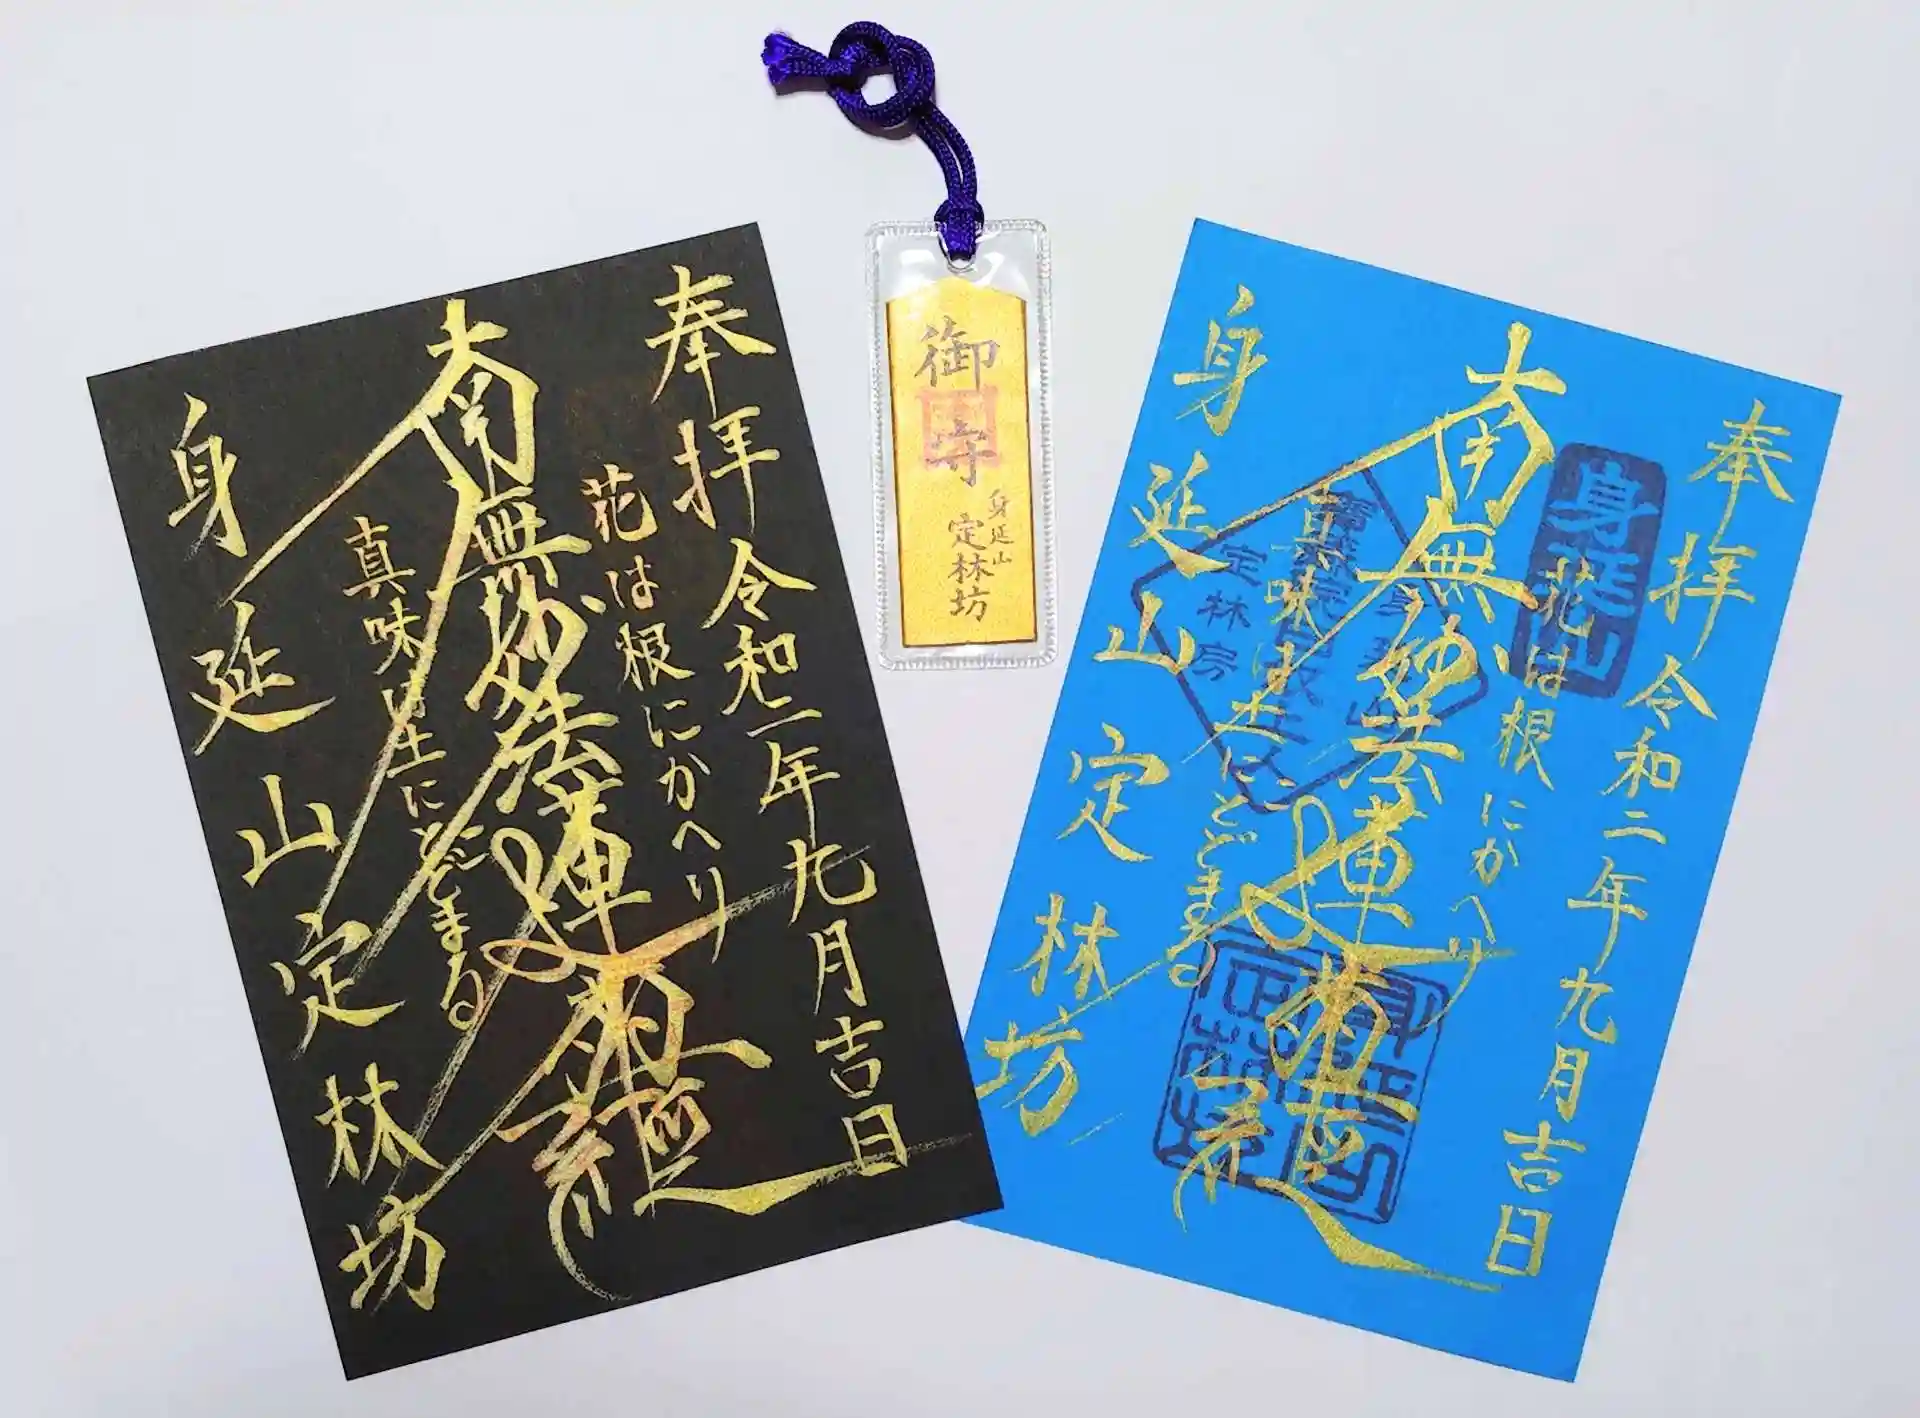 奉拝 令和二年九月吉日
花は根にかへり
南無妙法蓮華経
真味は土にとどまる
身延山 定林坊
御守
身延山
定林坊
奉拝 令和二年九月吉日
花は根にかへり
南無妙法蓮華経
真味は土にとどまる
身延山 定林坊
身延山
定林房